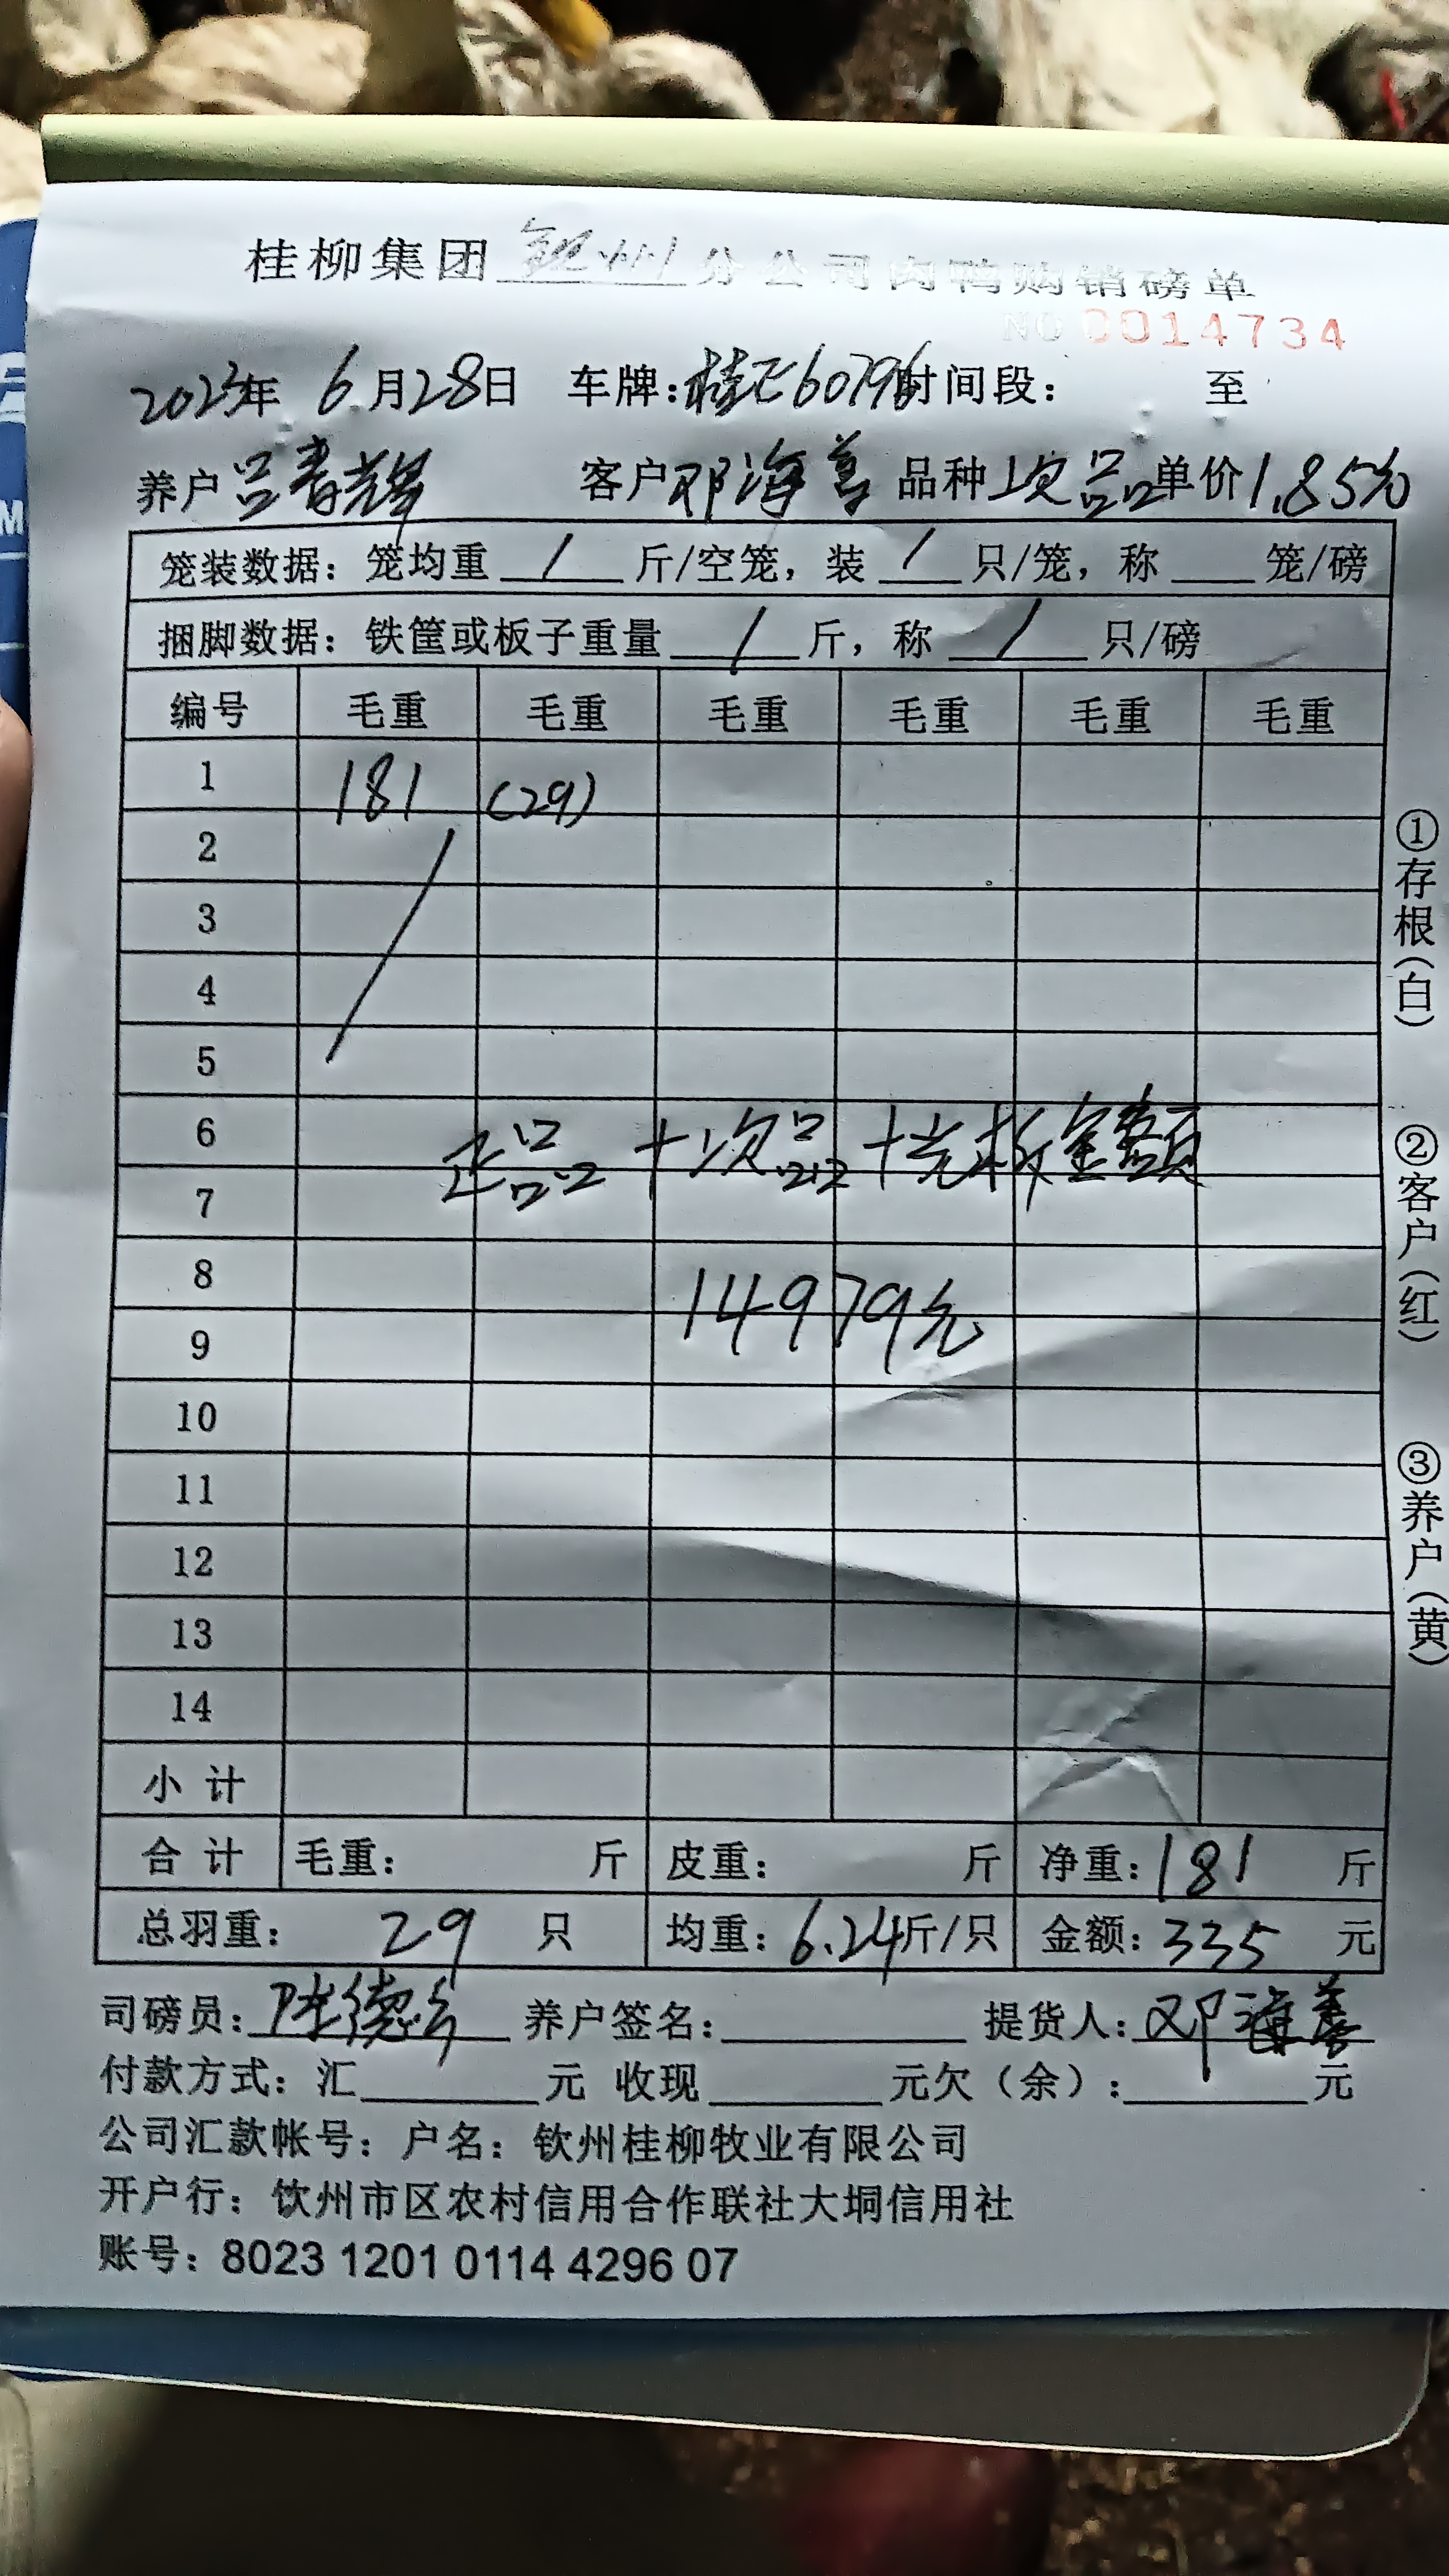 桂柳集团 钦州 分公司肉鸭购销磅单
NO 0014734
2023年 6月28日 车牌:桂E60796 时间段: 至
养户 吕春辉 客户 邓海善 品种 次品 单价 1.85元
笼装数据:笼均重 / 斤/空笼,装 / 只/笼,称 笼/磅
捆脚数据:铁筐或板子重量 / 斤,称 / 只/磅
编号 毛重 毛重 毛重 毛重 毛重 毛重
1 181 (29)
2
3
4
5
6
正品+次品+光板金额
7
8
14979元
9
10
11
12
13
14
小计
合计 毛重: 斤 皮重: 斤 净重:181 斤
总羽重: 29 只 均重:6.24斤/只 金额:335 元
司磅员: 养户签名: 提货人:邓海善
付款方式:汇 元 收现 元欠(余): 元
公司汇款帐号:户名:钦州桂柳牧业有限公司
开户行:饮州市区农村信用合作联社大垌信用社
账号:8023 1201 0114 4296 07
①存根(白)
②客户(红)
③养户(黄)